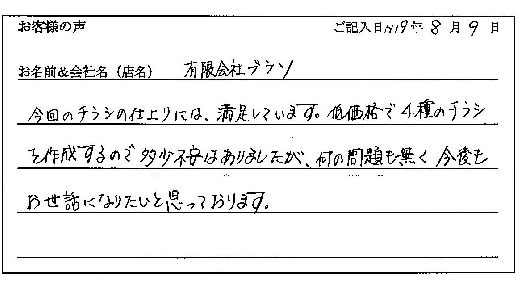 お客様の声 ご記入日 H19年 8月 9日
お名前&会社名(店名) 有限会社プラソ
今回のチラシの仕上りには、満足しています。低価格で4種のチラシ
を作成するので多少不安はありましたが、何の問題も無く今後も
お世話になりたいと思っております。